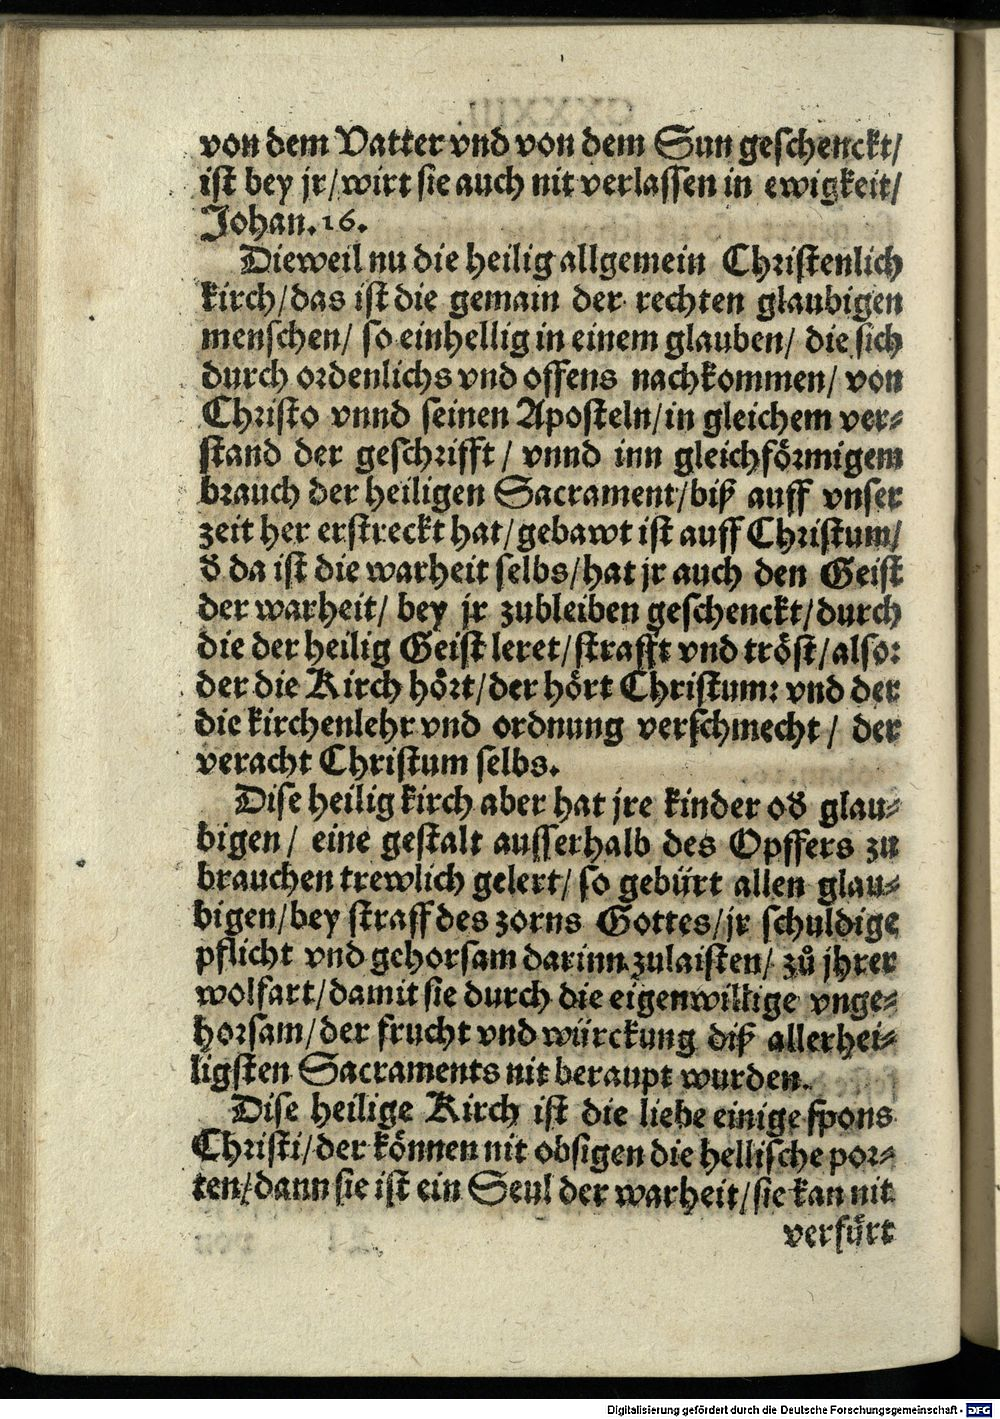 von dem Vatter vnd von dem Sun geschenckt/
ist bey jr/wirt sie auch nit verlassen in ewigkeit/
Johan.16.
Dieweil nu die heilig allgemein Christenlich
kirch/das ist die gemain der rechten glaubigen
menschen/ so einhellig in einem glauben/ die sich
durch ordenlichs vnd offens nachkommen/ von
Christo vnnd seinen Aposteln/in gleichem ver⸗
stand der geschrifft/ vnnd inn gleichförmigem
brauch der heiligen Sacrament/biß auff vnser
zeit her erstreckt hat/gebawt ist auff Christum/
d̕ da ist die warheit selbs/hat jr auch den Geist
der warheit/ bey jr zubleiben geschenckt/durch
die der heilig Geist leret/strafft vnd tröst/also:
der die Kirch hört/der hört Christum: vnd der
die kirchenlehr vnd ordnung verschmecht/ der
veracht Christum selbs.
Dise heilig kirch aber hat jre kinder od̕ glau⸗
bigen/ eine gestalt ausserhalb des Opffers zu
brauchen trewlich gelert/ so gebürt allen glau⸗
bigen/bey straff des zorns Gottes/jr schuldige
pflicht vnd gehorsam darinn zulaisten/ zů jhrer
wolfart/damit sie durch die eigenwillige vnge⸗
horsam/der frucht vnd würckung diß allerhei⸗
ligsten Sacraments nit beraupt wurden.
Dise heilige Kirch ist die liebe einige spons
Christi/der können nit obsigen die hellische por⸗
ten/dann sie ist ein Seul der warheit/sie kan nit
verfürt
Digitalisierung gefördert durch die Deutsche Forschungsgemeinschaft - DFG